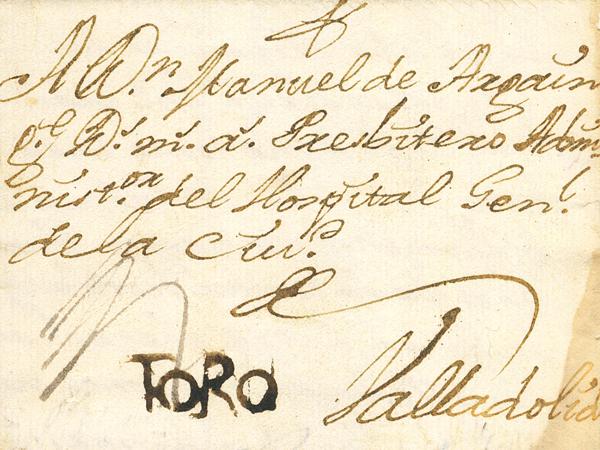 A Dn. Manuel de Arguin
q.e D.s m.s a.s Presbitero Admi
nist.or del Hospital Gen.l
de la Ciu.d
de
Valladolid
TORO